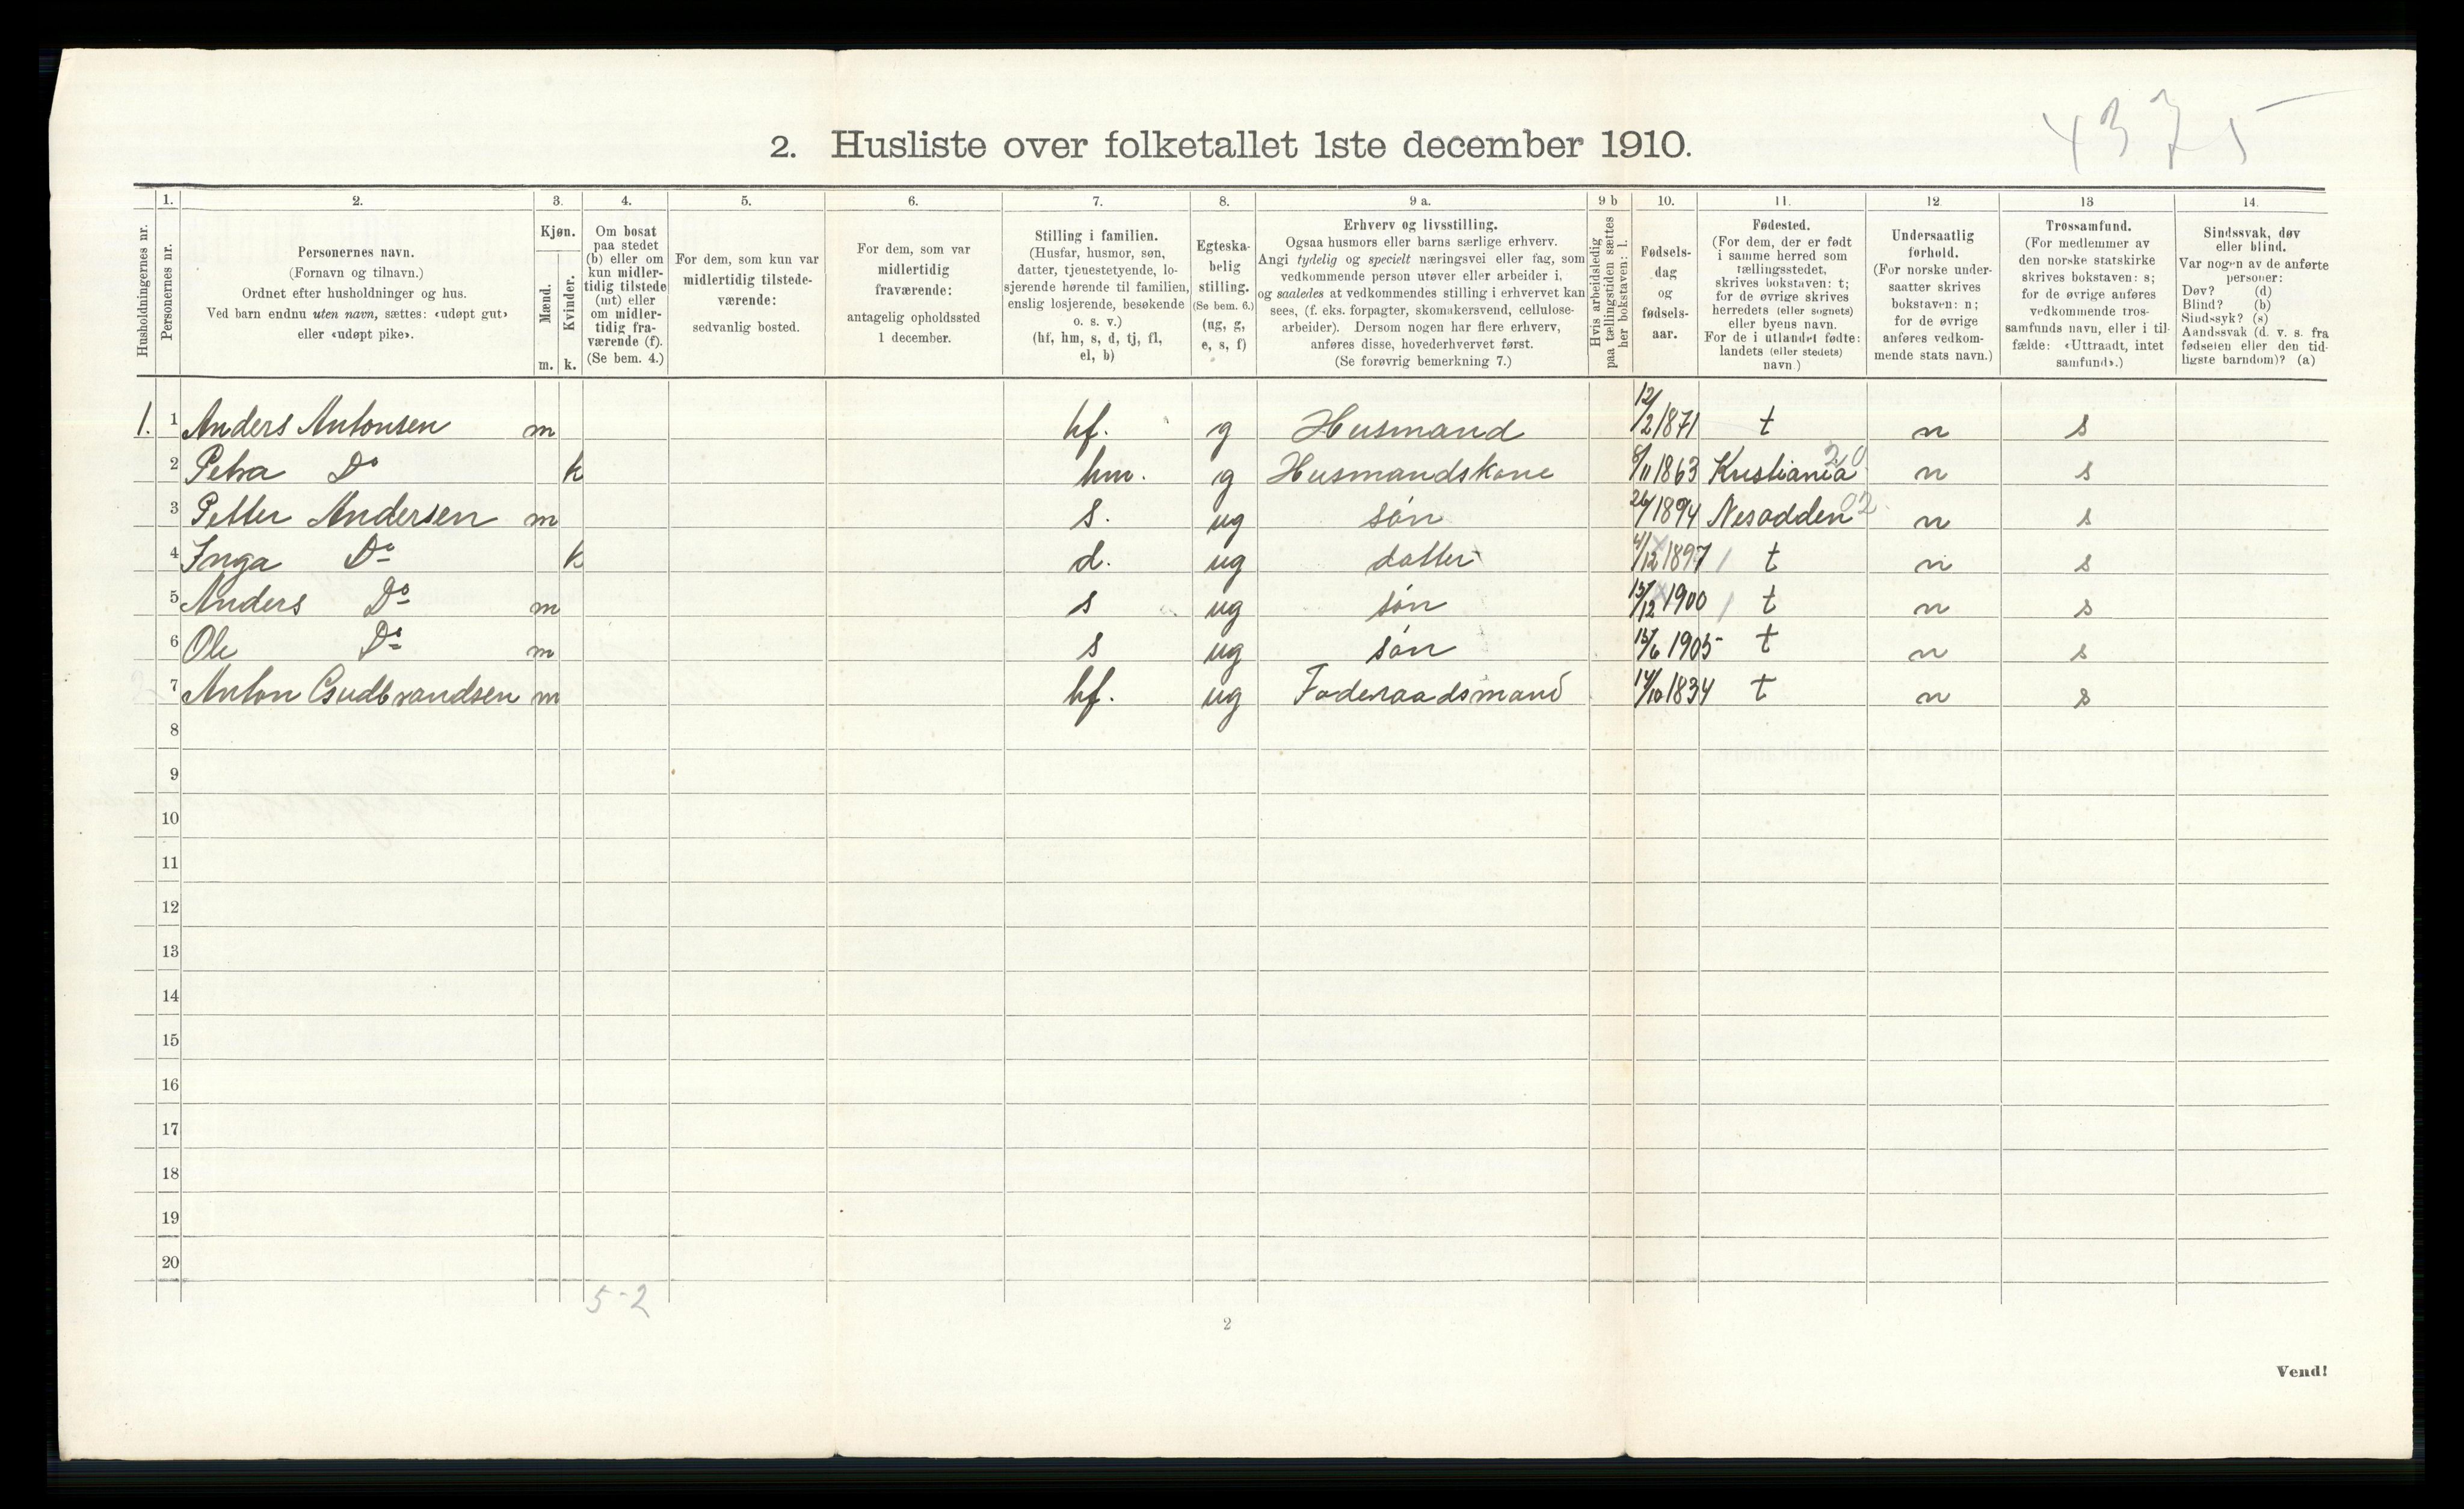 4375
2. Husliste over folketallet 1ste december 1910.
Husholdningernes nr.
1.
Personernes nr.
2.
Personernes navn.
(Fornavn og tilnavn.)
Ordnet efter husholdninger og hus.
Ved barn endnu uten navn, sættes: «udøpt gut»
eller «udøpt pike».
3.
Kjøn.
Mænd.
Kvinder.
m. k.
4.
Om bosat
paa stedet
(b) eller om
kun midler-
tidig tilstede
(mt) eller
om midler-
tidig fra-
værende (f).
(Se bem. 4.)
5.
For dem, som kun var
midlertidig tilstede-
værende:
sedvanlig bosted.
6.
For dem, som var
midlertidig
fraværende:
antagelig opholdssted
1 december.
7.
Stilling i familien.
(Husfar, husmor, søn,
datter, tjenestetyende, lo-
sjerende hørende til familien,
enslig losjerende, besøkende
o. s. v.)
(hf, hm, s, d, tj, fl,
el, b)
8.
Egteska-
belig
stilling.
(Se bem. 6.)
(ug, g,
e, s, f)
9 a.
Erhverv og livsstilling.
Ogsaa husmors eller barns særlige erhverv.
Angi tydelig og specielt næringsvei eller fag, som
vedkommende person utøver eller arbeider i,
og saaledes at vedkommendes stilling i erhvervet kan
sees, (f. eks. forpagter, skomakersvend, cellulose-
arbeider). Dersom nogen har flere erhverv,
anføres disse, hovederhvervet først.
(Se forøvrig bemerkning 7.)
9 b
Hvis arbeidsledig
paa tællingstiden sættes
her bokstaven: l.
10.
Fødsels-
dag
og
fødsels-
aar.
11.
Fødested.
(For dem, der er født
i samme herred som
tællingsstedet,
skrives bokstaven: t;
for de øvrige skrives
herredets (eller sognets)
eller byens navn.
For de i utlandet fødte:
landets (eller stedets)
navn.)
12.
Undersaatlig
forhold.
(For norske under-
saatter skrives
bokstaven: n;
for de øvrige
anføres vedkom-
mende stats navn.)
13
Trossamfund.
(For medlemmer av
den norske statskirke
skrives bokstaven: s;
for de øvrige anføres
vedkommende tros-
samfunds navn, eller i til-
fælde: «Uttraadt, intet
samfund».)
14.
Sindssvak, døv
eller blind.
Var nogen av de anførte
personer:
Døv? (d)
Blind? (b)
Sindssyk? (s)
Aandssvak (d. v. s. fra
fødselen eller den tid-
ligste barndom)? (a)
1. 1 Anders Antonsen m hf. g Husmand 12/2 1871 t n s
2 Petra Do k hm. g Husmandskone 8/11 1863 Kristiania 20 n s
3 Petter Andersen m s. ug søn 26/ 1894 Nesodden 02 n s
4 Inga Do k d. ug datter 4/12 1897 / t n s
5 Anders Do m s ug søn 13/12 1900 / t n s
6 Ole Do m s ug søn 15/6 1905 t n s
7 Anton Gudbrandsen m hf. ug Føderaadsmand 14/10 1834 t n s
8
9
10
11
12
13
14
15
16
17
18
19
20
5-2
2
Vend!